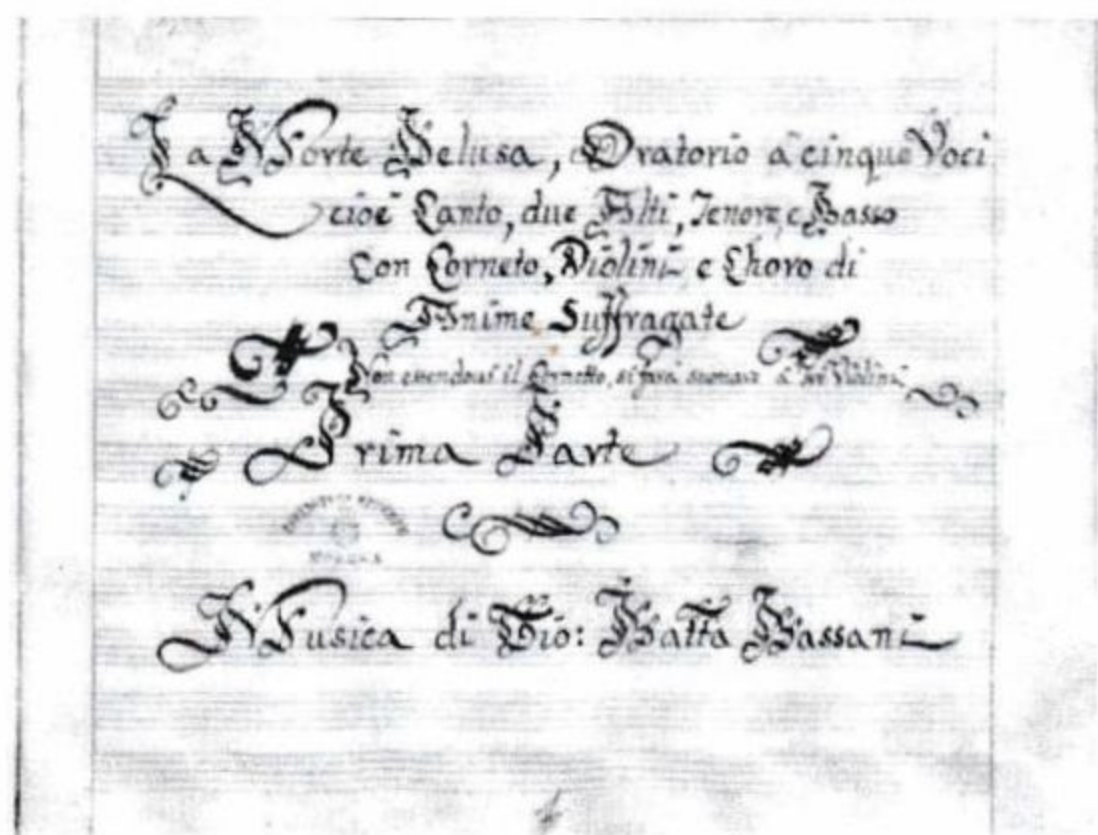 La Morte Delusa, Oratorio à cinque Voci
cioè Canto, due Alti, Tenore, e Basso
Con Corneto, Violini, e Choro di
Anime Suffragate
Non essendovi il Cornetto, si farà suonare à Violini
Prima Parte
Musica di Gio: Batta Bassani